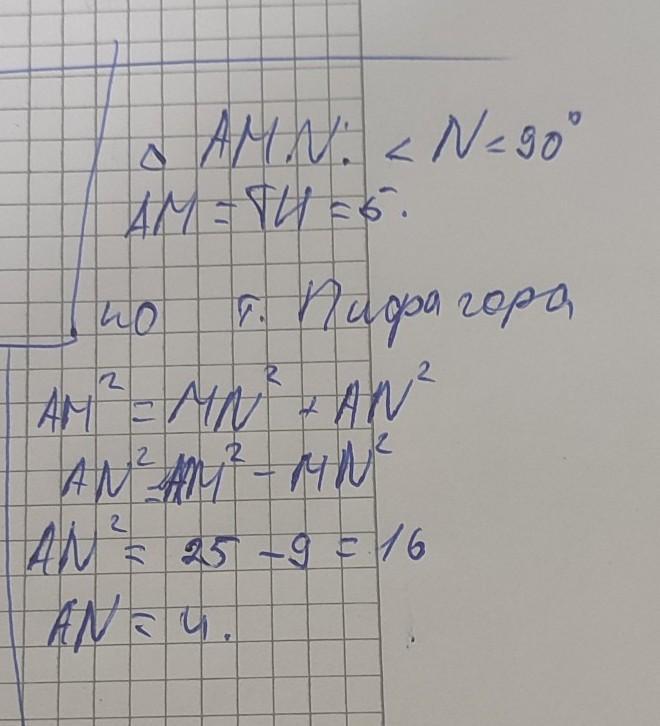 △ AMN: < N = 90°
AM = TH = 5.
по т. Пифагора
AM² = MN² + AN²
AN² = AM² - MN²
AN² = 25 - 9 = 16
AN = 4.